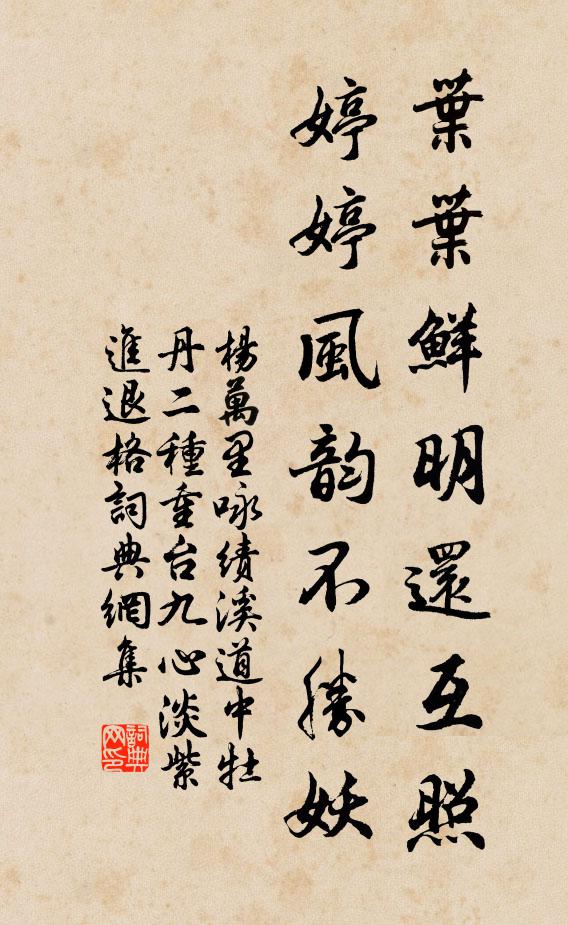 葉葉鮮明還互照
婷婷風韵不勝妖
楊萬里咏績溪道中牡
丹二種重台九心淡紫
進退格詞典網集
詞典
网印